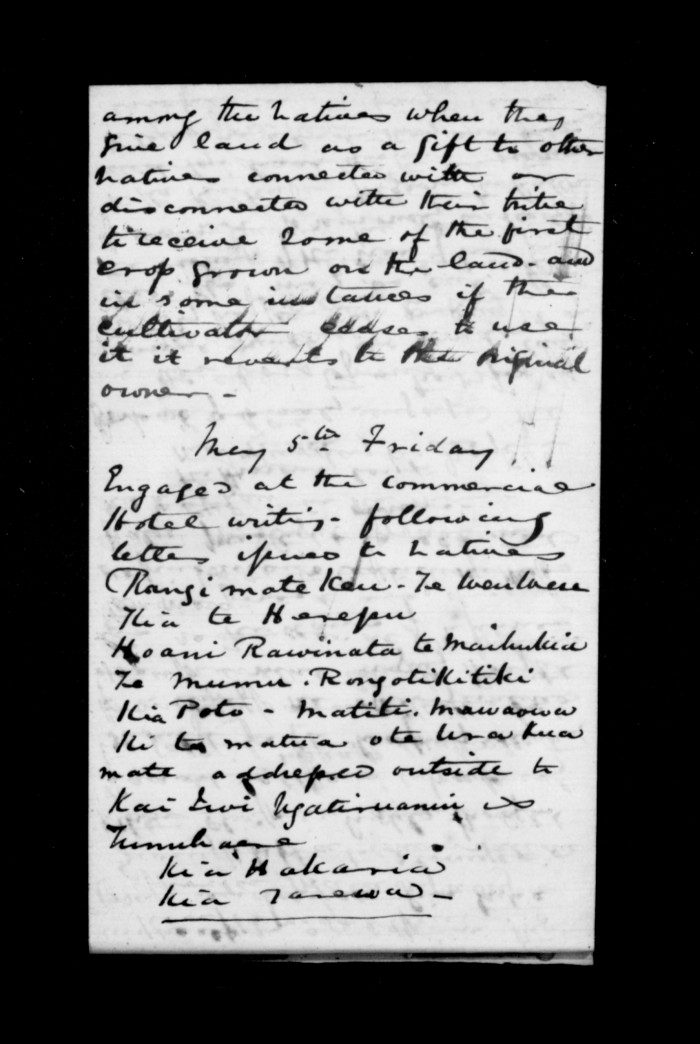 among the natives when they
give land as a gift to other
natives connected with or
disconnected with their tribe
to receive some of the first
crop grown on the land - and
in some instances if the
cultivator ceases to use
it it reverts to the original
owner -
May 5th Friday
Engaged at the commercial
Hotel writing - following
letters issued to natives
Rangi mate Keu - Te
Kia te Herepu
Hoani Rawinata te Maihukia
Te mumu . Rongotikitiki
Kia Poto - Matiti . Mawaowa
Ki te matua ote Ura kua
mate addressed outside to
Kai Iwi Ngatiruanui
Tunuhaere
Kia Hakaria
Kia Tarewa -